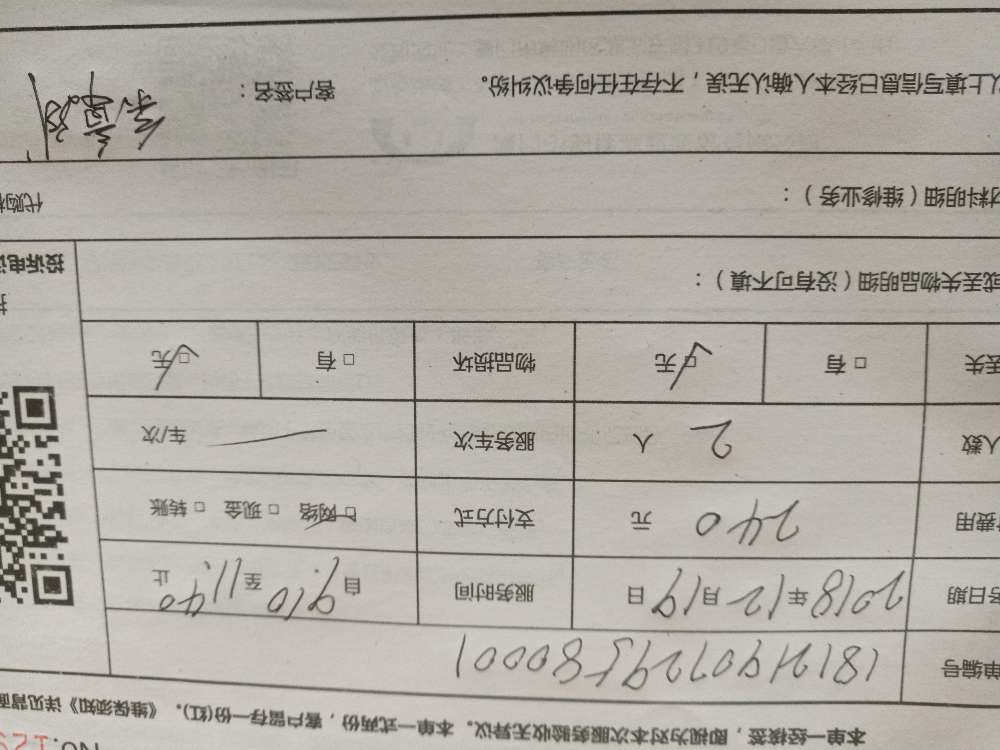 No.
本单一经核签，即视为对本次服务验收无异议。本单一式两份，客户留存一份(红)。《维保须知》详见背面
单编号 1812190729580001
务日期 2018年12月19日 服务时间 自9.10至11.40止
费用 240 元 支付方式 □网络 □现金 □转账
人数 2 人 服务车次 车/次
丢失 □有 □无 物品损坏 □有 □无
或丢失物品明细（没有可不填）：
投诉电话
材料明细（维修业务）： 代购
以上填写信息已经本人确认无误，不存在任何争议纠纷。 客户签名：